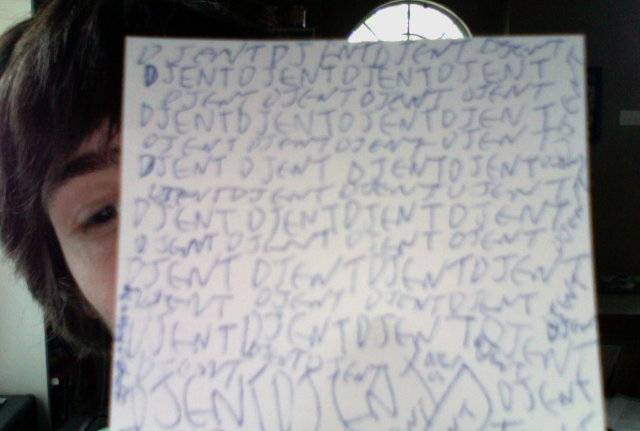 DJENT DJENT DJENT DJENT
DJENT DJENT DJENT DJENT
DJENT DJENT DJENT DJENT
DJENT DJENT DJENT DJENT
DJENT DJENT DJENT DJENT
DJENT DJENT DJENT DJENT
DJENT DJENT DJENT DJENT
DJENT DJENT DJENT DJENT
DJENT DJENT DJENT DJENT
DJENT DJENT DJENT DJENT
DJENT DJENT DJENT DJENT
DJENT DJENT DJENT DJENT
DJENT DJENT
DJENT DJENT DJENT